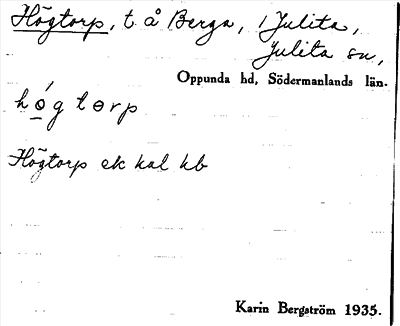 Högtorp, t å Berga, i Julita,
Julita sn,
Oppunda hd, Södermanlands län.
hó̱gtɵrp
Högtorp ek kal kb
Karin Bergström 1935.